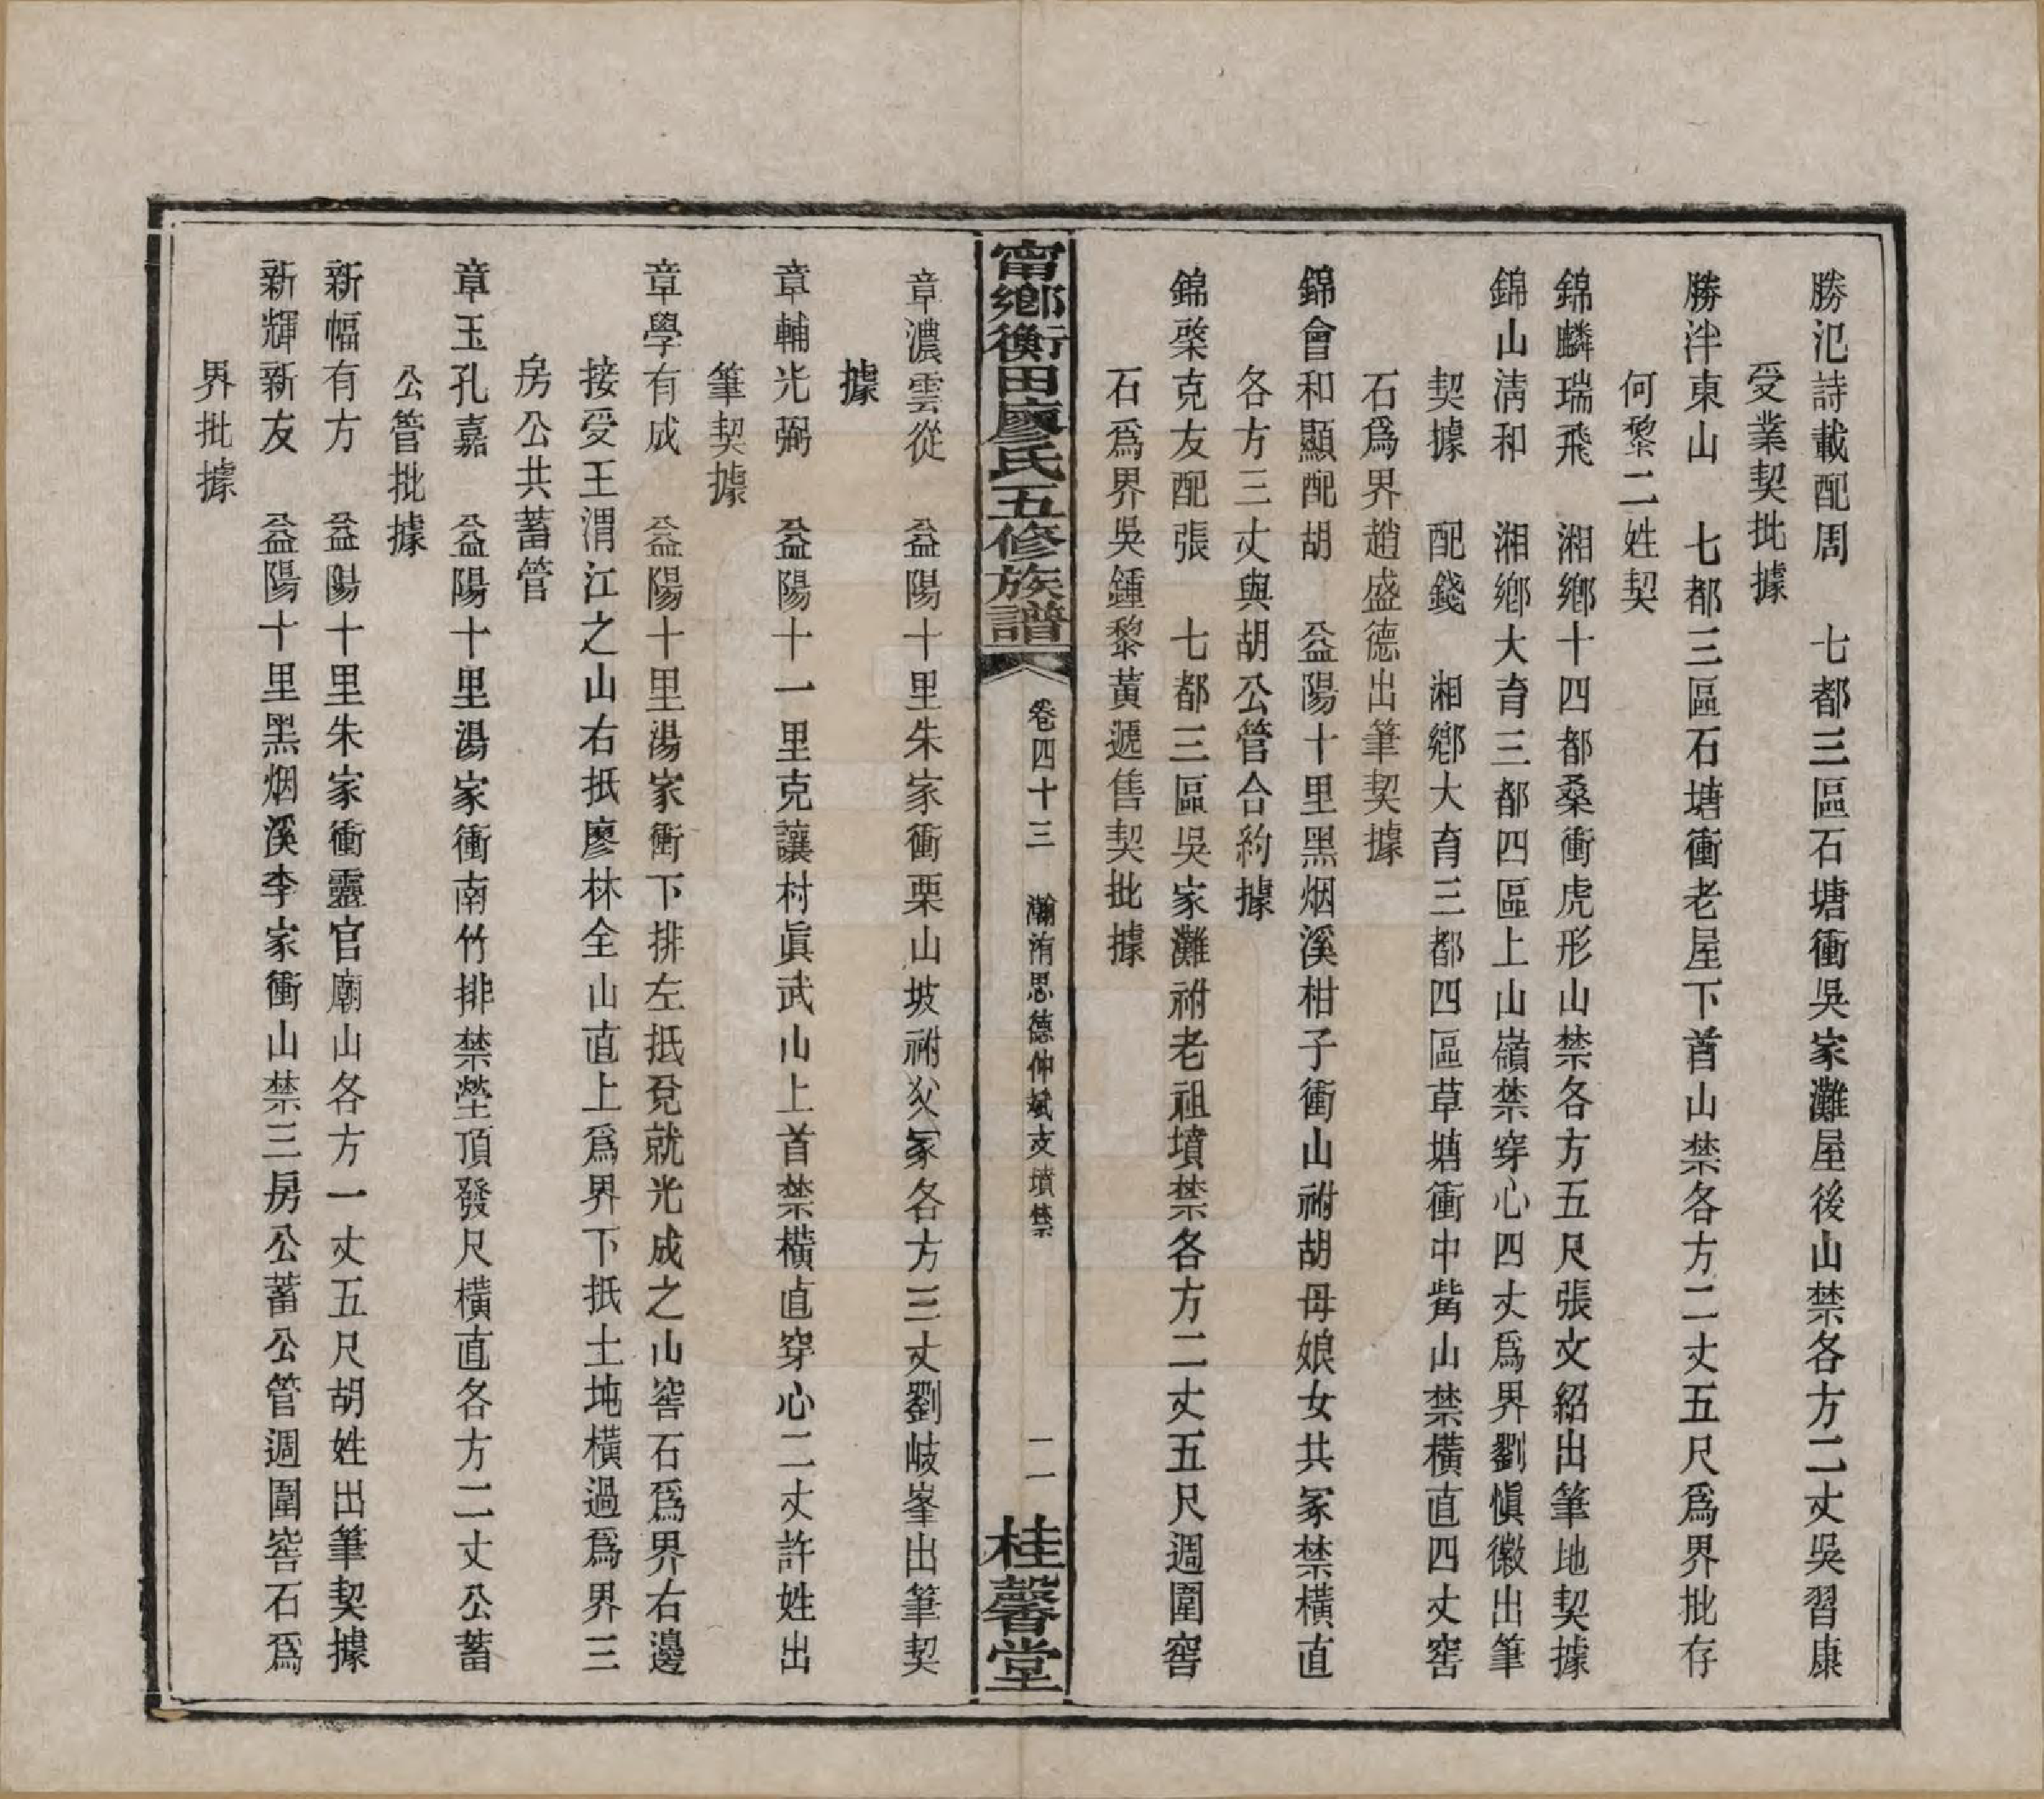 勝汜詩載配周　七都三區石塘衝吳家灘屋後山禁各方二丈吳習康
受業契批據
勝泮東山　七都三區石塘衝老屋下首山禁各方二丈五尺爲界批存
何黎二姓契
錦麟瑞飛　湘鄉十四都桑衝虎形山禁各方五尺張文紹出筆地契據
錦山淸和　湘鄉大育三都四區上山嶺禁穿心四丈爲界劉愼徽出筆
契據　配錢　湘鄉大育三都四區草塘衝中觜山禁橫直四丈窖
石爲界趙盛德出筆契據
錦會和顯配胡　益陽十里黑烟溪柑子衝山祔胡母娘女共冢禁橫直
各方三丈與胡公管合約據
錦棨克友配張　七都三區吳家灘祔老祖墳禁各方二丈五尺週圍窖
石爲界吳鍾黎黃遞售契批據
甯鄉衡田廖氏五修族譜
卷四十三　瀚洧思德仲斌支墳禁
二一
桂馨堂
章濃雲從　益陽十里朱家衝栗山坡祔父冢各方三丈劉岐峯出筆契
據
章輔光弼　益陽十一里克讓村眞武山上首禁橫直穿心二丈許姓出
筆契據
章學有成　益陽十里湯家衝下排左抵兗就光成之山窖石爲界右邊
接受王渭江之山右抵廖林全山直上爲界下抵土地橫過爲界三
房公共蓄管
章玉孔嘉　益陽十里湯家衝南竹排禁塋頂發尺橫直各方二丈公蓄
公管批據
新幅有方　益陽十里朱家衝靈官廟山各方一丈五尺胡姓出筆契據
新輝新友　益陽十里黑烟溪李家衝山禁三房公蓄公管週圍窖石爲
界批據